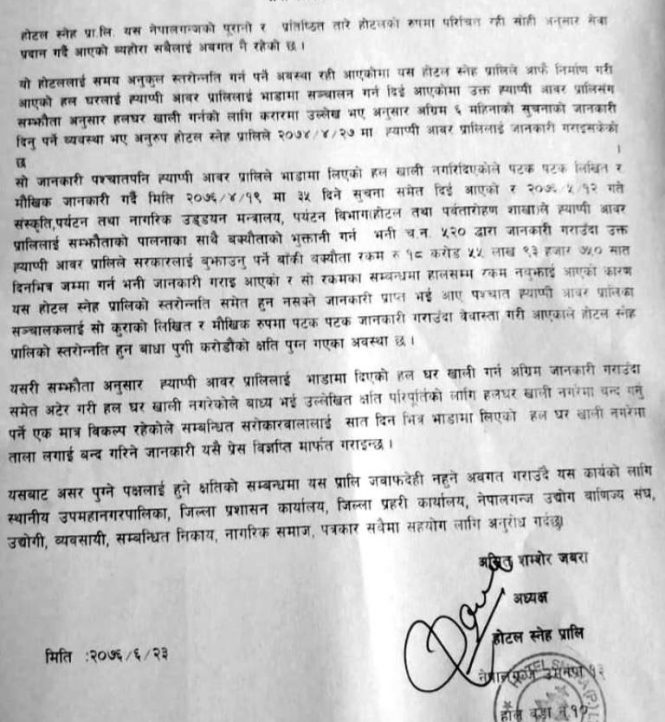 होटल स्नेह प्रा.लि. यस नेपालगन्जको पूरानो र प्रतिष्ठित तारे होटलको रुपमा परिचित रही सोही अनुसार सेवा
प्रदान गर्दै आएको ब्यहोरा सबैलाई अवगत नै रहेकी छ ।
यो होटललाई समय अनुकुल स्तरोन्नति गर्न पर्ने अवस्था रही आएकोमा यस होटल स्नेह प्रालिले आफै निर्माण गरी
आएको हल घरलाई ह्याप्पी आवर प्रालिलाई भाडामा सञ्चालन गर्न दिई आएकोमा उक्त ह्याप्पी आवर प्रालिसंग
सम्झौता अनुसार हलघर खाली गर्नको लागि करारमा उल्लेख भए अनुसार अग्रिम ६ महिनाको सुचनाको जानकारी
दिनु पर्ने ब्यवस्था भए अनुरुप होटल स्नेह प्रालिले २०७४/४/२७ मा ह्याप्पी आवर प्रालिलाई जानकारी गराइसकेको
छ ।
सो जानकारी पश्चातपनि ह्याप्पी आवर प्रालिले भाडामा लिएको हल खाली नगरिदिएकोले पटक पटक लिखित र
मौखिक जानकारी गर्दै मिति २०७६/४/१९ मा ३५ दिने सुचना समेत दिई आएको र २०७६/५/१२ गते
संस्कृति,पर्यटन तथा नागरिक उड्डयन मन्त्रालय, पर्यटन विभाग(होटल तथा पर्वतारोहण शाखा)ले ह्याप्पी आवर
प्रालिलाई सम्झौताको पालनाका साथै बक्यौताको भुक्तानी गर्न भनी च.न. ५२० द्वारा जानकारी गराउंदा उक्त
ह्याप्पी आवर प्रालिले सरकारलाई बुझाउनु पर्ने बांकी बक्यौता रकम रु १८ करोड ५५ लाख ९३ हजार ७५० सात
दिनभित्र जम्मा गर्न भनी जानकारी गराइ आएको र सो रकमका सम्बन्धमा हालसम्म रकम नबुझाई आएको कारण
यस होटल स्नेह प्रालिको स्तरोन्नति समेत हुन नसक्ने जानकारी प्राप्त भई आए पश्चात ह्याप्पी आवर प्रालिका
सञ्चालकलाई सो कुराको लिखित र मौखिक रुपमा पटक पटक जानकारी गराउंदा वेवास्ता गरी आएकाले होटल स्नेह
प्रालिको स्तरोन्नति हुन बाधा पुगी करोडौको क्षति पुग्न गएका अवस्था छ ।
यसरी सम्झौता अनुसार ह्याप्पी आवर प्रालिलाई भाडामा दिएको हल घर खाली गर्न अग्रिम जानकारी गराउंदा
समेत अटेर गरी हल घर खाली नगरेकोले बाध्य भई उल्लेखित क्षति परिपूर्तिको लागि हलघर खाली नगरेमा बन्द गर्नु
पर्ने एक मात्र बिकल्प रहेकोले सम्बन्धित सरोकारवालालाई सात दिन भित्र भाडामा लिएको हल घर खाली नगरेमा
ताला लगाई बन्द गरिने जानकारी यसै प्रेस बिज्ञप्ति मार्फत गराइन्छ ।
यसबाट असर पुग्ने पक्षलाई हुने क्षतिको सम्बन्धमा यस प्रालि जवाफदेही नहुने अवगत गराउँदै यस कार्यको लागि
स्थानीय उपमहानगरपालिका, जिल्ला प्रशासन कार्यालय, जिल्ला प्रहरी कार्यालय, नेपालगन्ज उद्योग बाणिज्य संघ,
उद्योगी, ब्यवसायी, सम्बन्धित निकाय, नागरिक समाज, पत्रकार सबैमा सहयोग लागि अनुरोध गर्दछु
अमित शम्शेर जबरा
अध्यक्ष
होटल स्नेह प्रालि
मिति :२०७६/६/२३